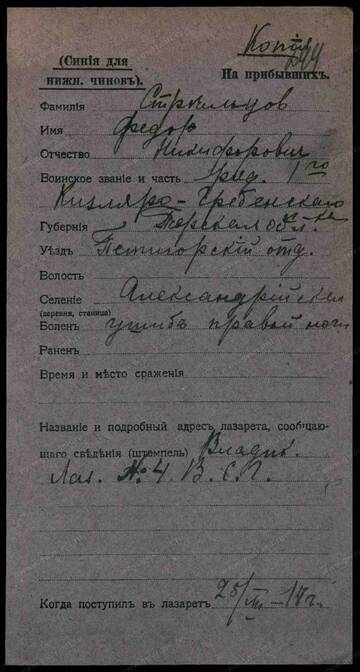 Копія
244
(Синія для
нижн. чиновъ).
На прибывшихъ.
Фамилія Стрѣльцов
Имя Федор
Отчество Никифорович
Воинское званіе и часть ряд. 1го
Кизляро-Гребенскаго
Губернія Терская обл.
Уѣздъ Пятигорскій отд.
Волость
Селеніе Александрійская
(деревня, станица)
Боленъ ушиб правой ноги
Раненъ
Время и мѣсто сраженія
Названіе и подробный адресъ лазарета, сообщаю-
щаго свѣдѣнія (штемпель) Владик.
Лаз. № 4 В. С. Г.
Когда поступилъ въ лазаретъ 17 г.